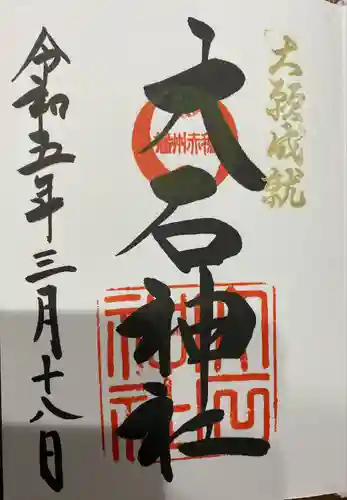 大願成就
播州赤穂
大石神社
大石神社
令和五年三月十八日